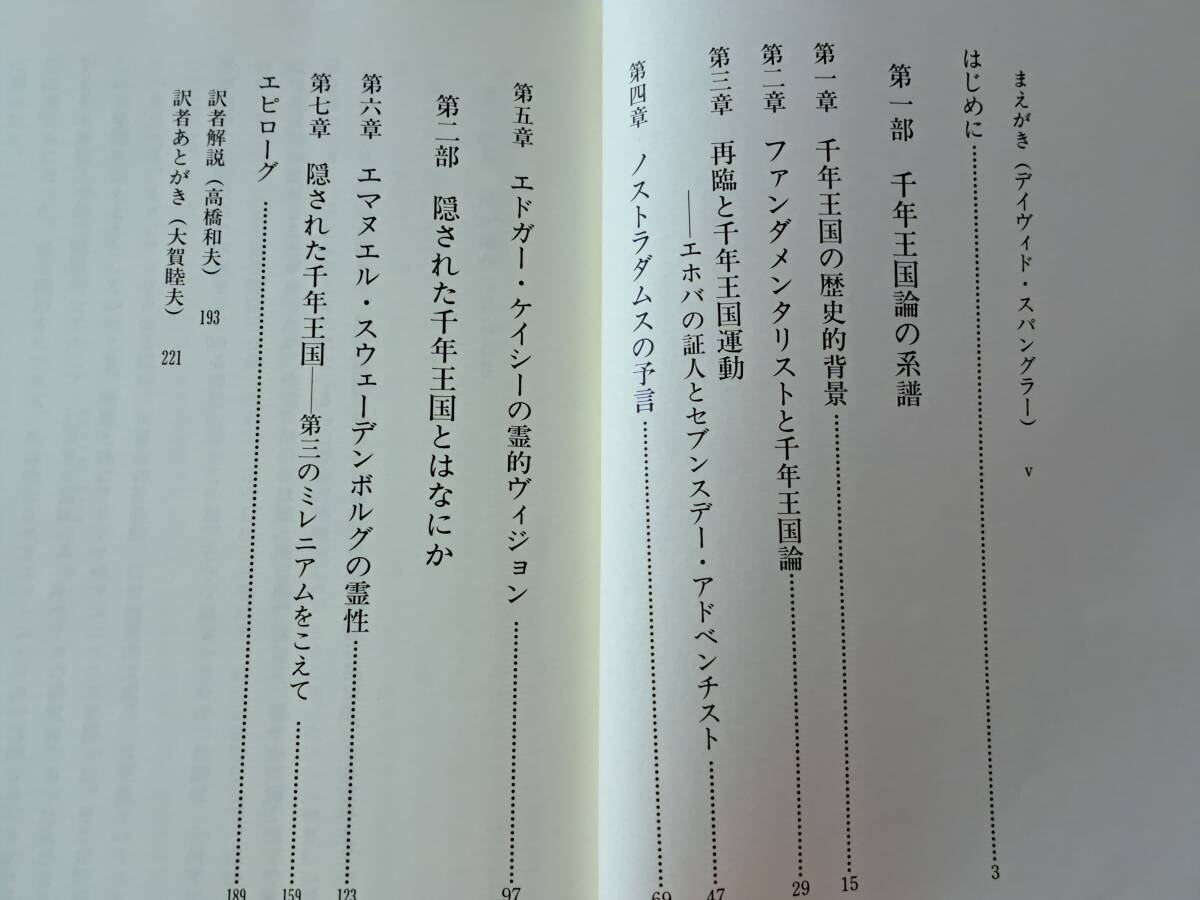 まえがき（デイヴィド・スパングラー） v
はじめに……………3
第一部 千年王国論の系譜
第一章 千年王国の歴史的背景……………15
第二章 ファンダメンタリストと千年王国論……………29
第三章 再臨と千年王国運動
――エホバの証人とセブンスデー・アドベンチスト……………47
第四章 ノストラダムスの予言……………69
第五章 エドガー・ケイシーの霊的ヴィジョン……………97
第二部 隠された千年王国とはなにか
第六章 エマヌエル・スウェーデンボルグの霊性……………123
第七章 隠された千年王国――第三のミレニアムをこえて……………159
エピローグ……………189
訳者解説（高橋和夫） 193
訳者あとがき（大賀睦夫） 221